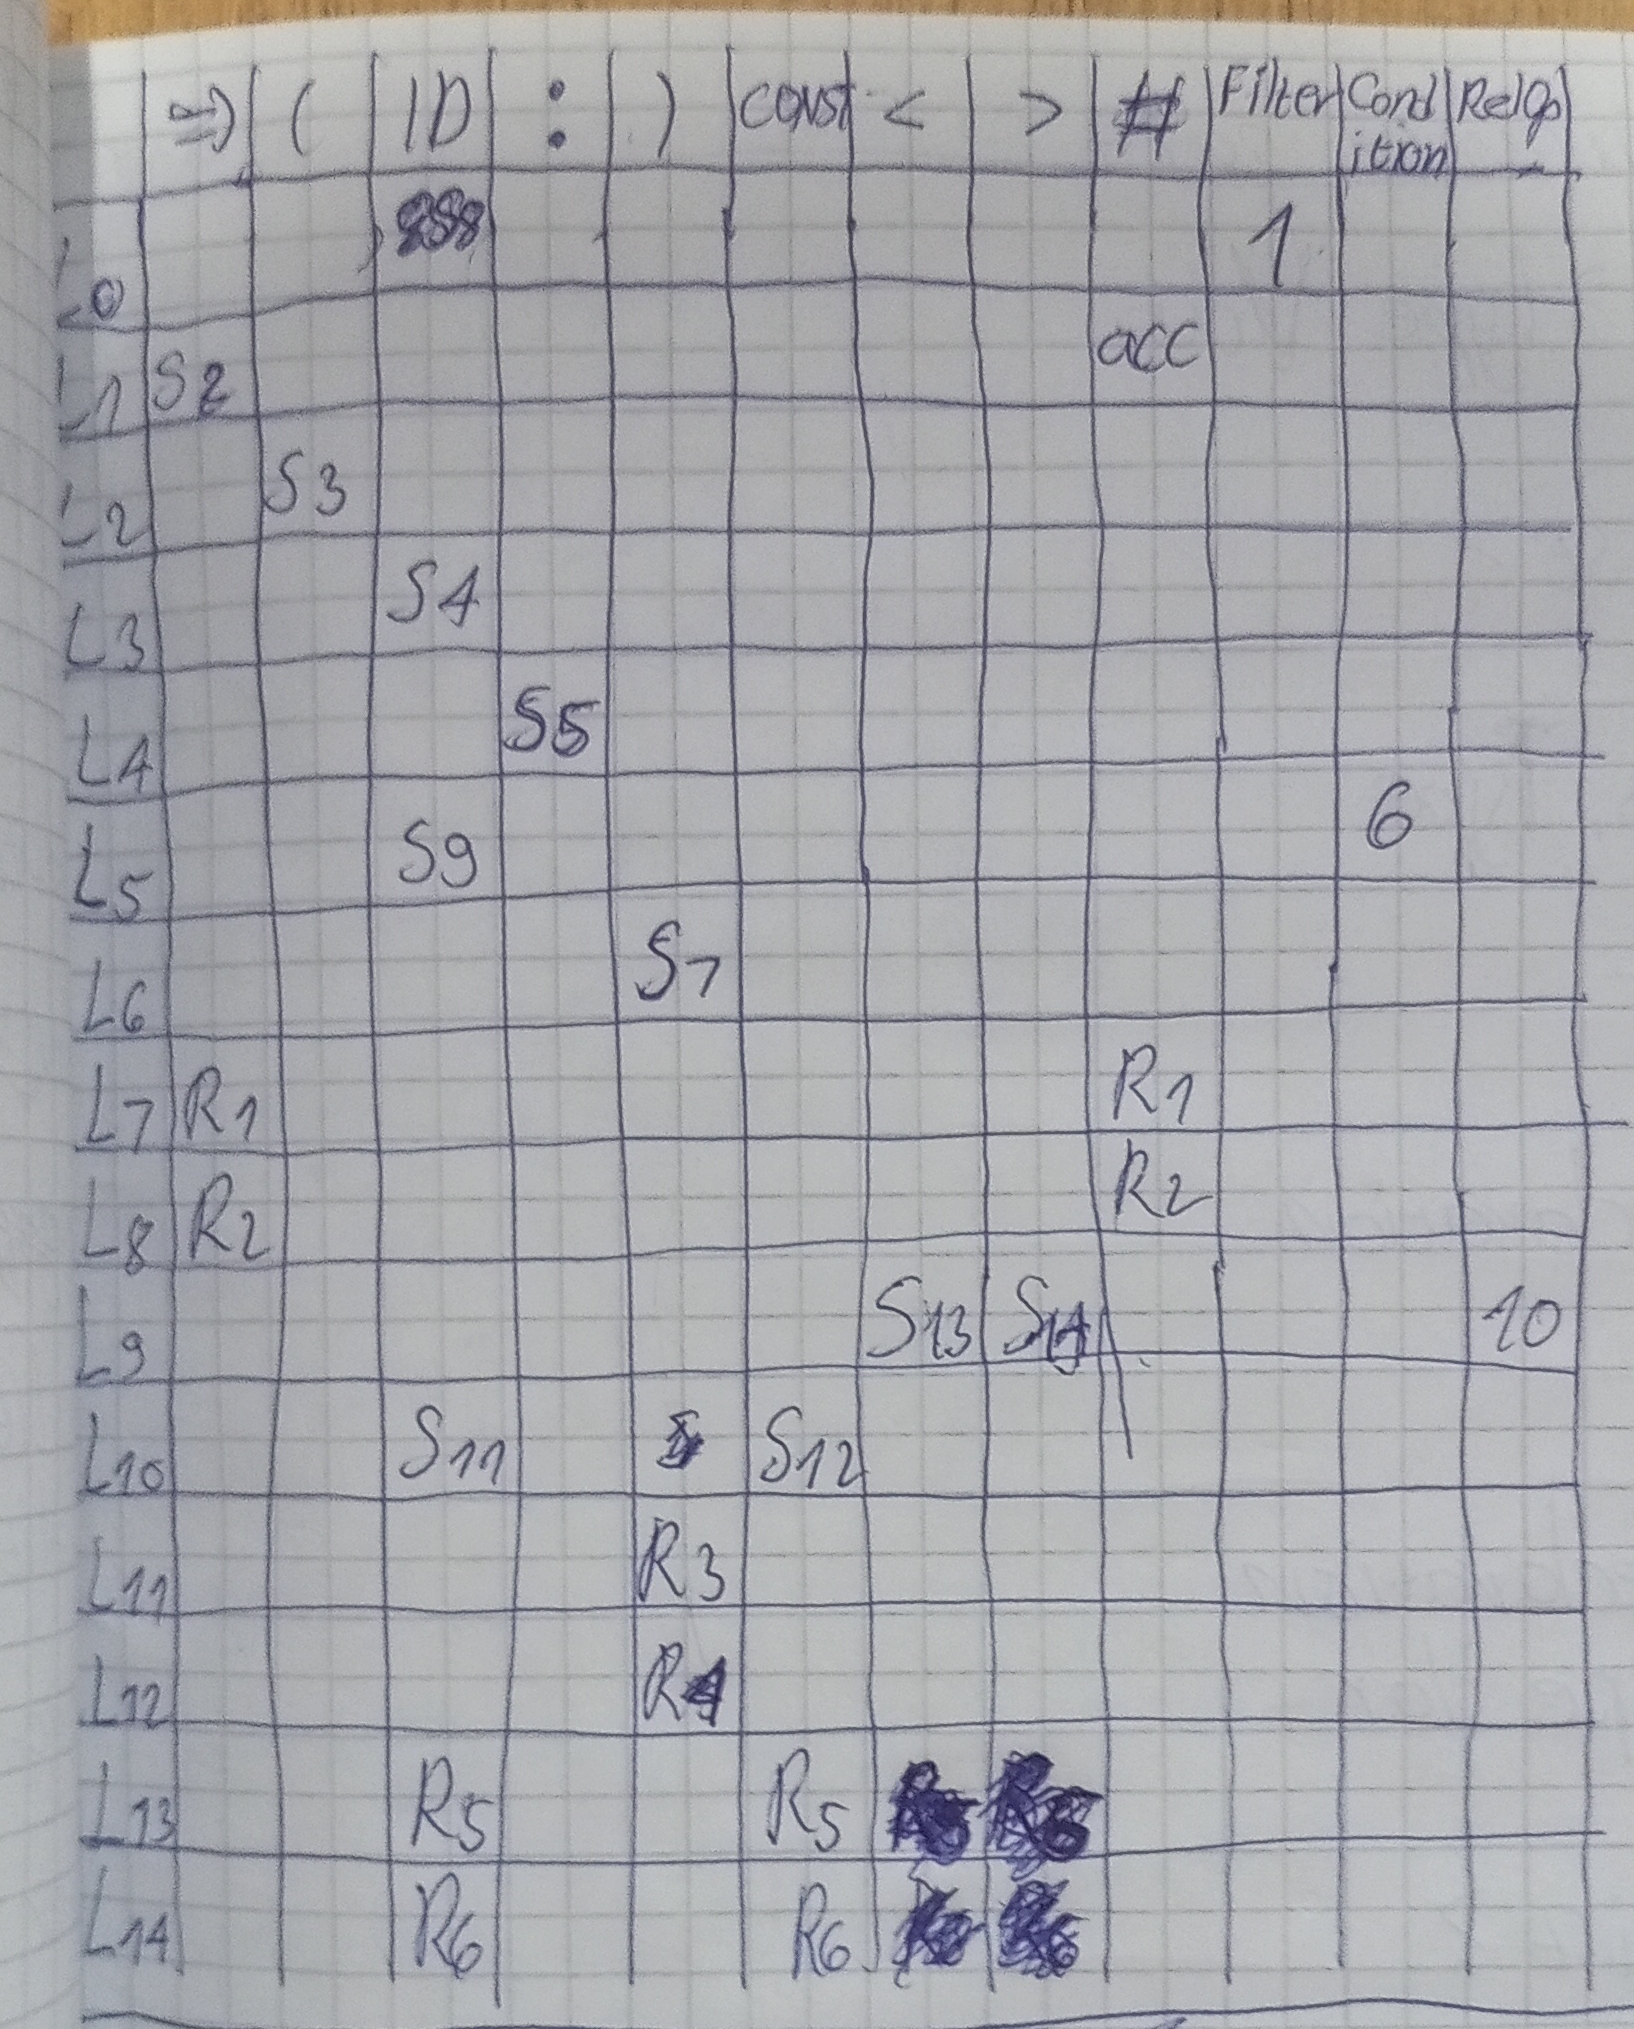 ⇒ ( ID : ) const < > # Filter Condition RelOp
L0 S8 1
L1 S2 acc
L2 S3
L3 S4
L4 S5
L5 S9 6
L6 S7
L7 R1 R1
L8 R2 R2
L9 S13 S14 10
L10 S11 S12
L11 R3
L12 R4
L13 R5 R5
L14 R6 R6